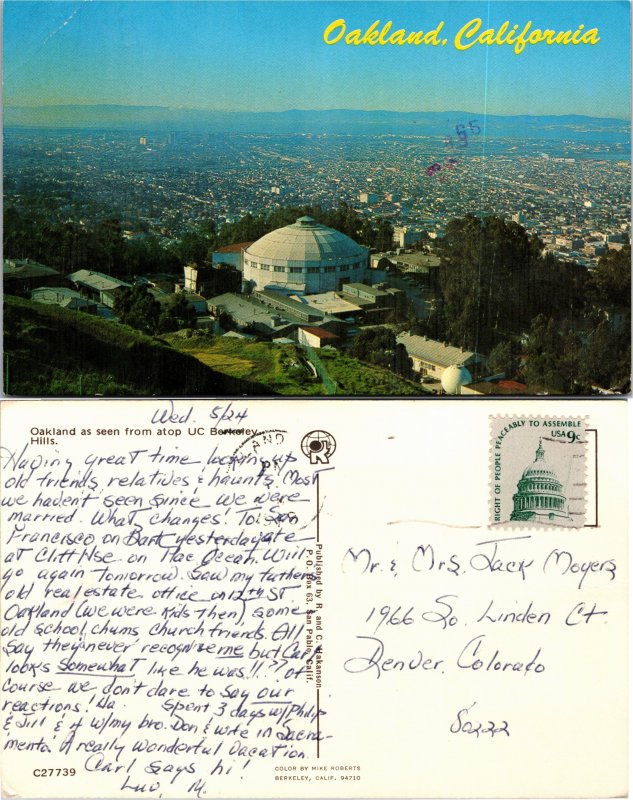 Oakland, California
Wed. 5/24
Oakland as seen from atop UC Berkeley
Hills.
Having great time looking up
old friends, relatives & haunts. Most
we haven't seen since we were
married. What changes! To San
Francisco on Bart yesterday ate
at Cliff Hse on the Ocean. Will
go again Tomorrow. Saw my fathers
old real estate office on 12th ST
Oakland (we were kids then), some
old school chums church friends. All
say they never recognize me but Carl
looks Somewhat like he was!!?? of
course we don't dare to say our
reactions! Ha. Spent 3 days w/Philip
& Jill & 4 w/my bro. Don & wife in Sacra-
mento. A really wonderful vacation.
Carl says hi!
Luv, M.
C27739
Published by R. and C. Wakanson
P.O. Box 63, San Pablo, Calif.
COLOR BY MIKE ROBERTS
BERKELEY, CALIF. 94710
RIGHT OF PEOPLE PEACEABLY TO ASSEMBLE
USA 9c
Mr. & Mrs. Jack Moyers
1966 So. Linden Ct.
Denver, Colorado
80222